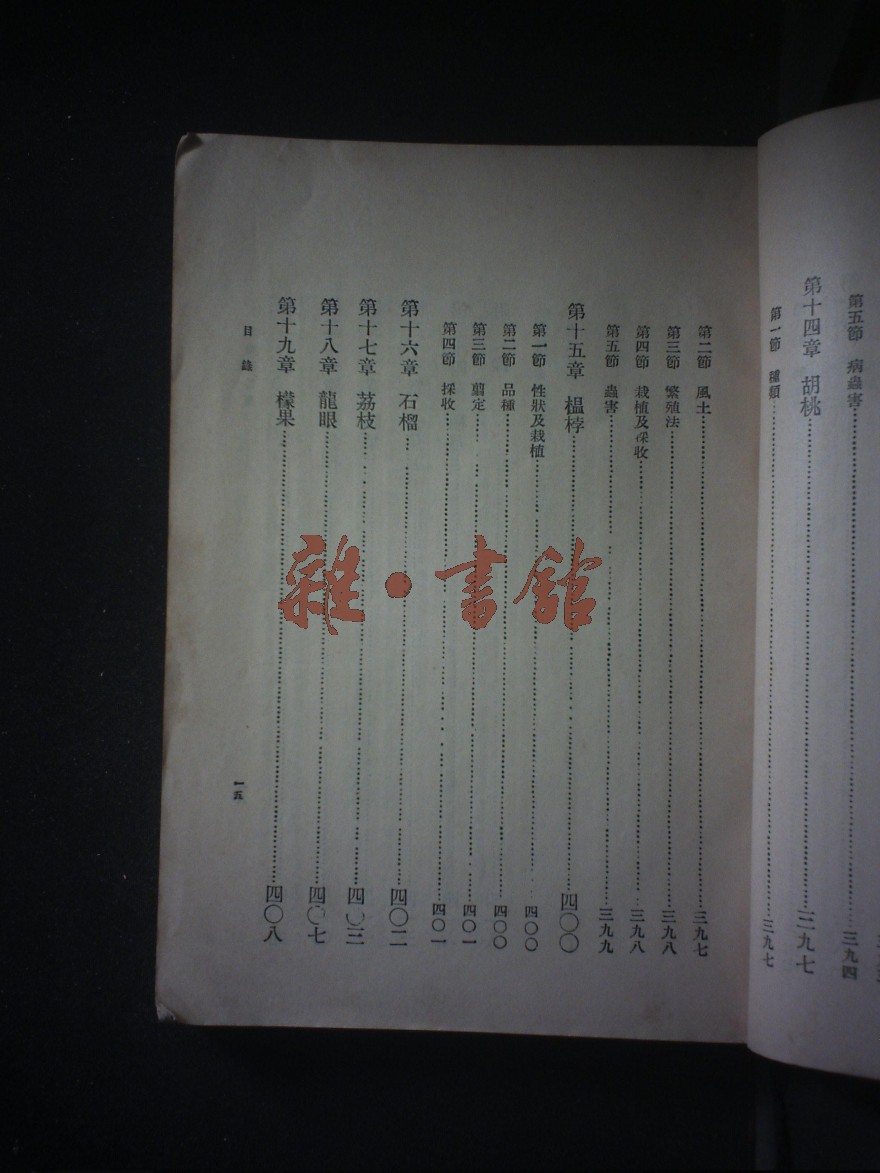 第五節 病蟲害 三九四
第十四章 胡桃 三九七
第一節 種類 三九七
第二節 風土 三九七
第三節 繁殖法 三九八
第四節 栽植及採收 三九八
第五節 蟲害 三九九
第十五章 榲桲 四〇〇
第一節 性狀及栽植 四〇〇
第二節 品種 四〇〇
第三節 剪定 四〇一
第四節 採收 四〇一
第十六章 石榴 四〇二
第十七章 荔枝 四〇三
第十八章 龍眼 四〇七
第十九章 檬果 四〇八
目錄 一五
雜·書館